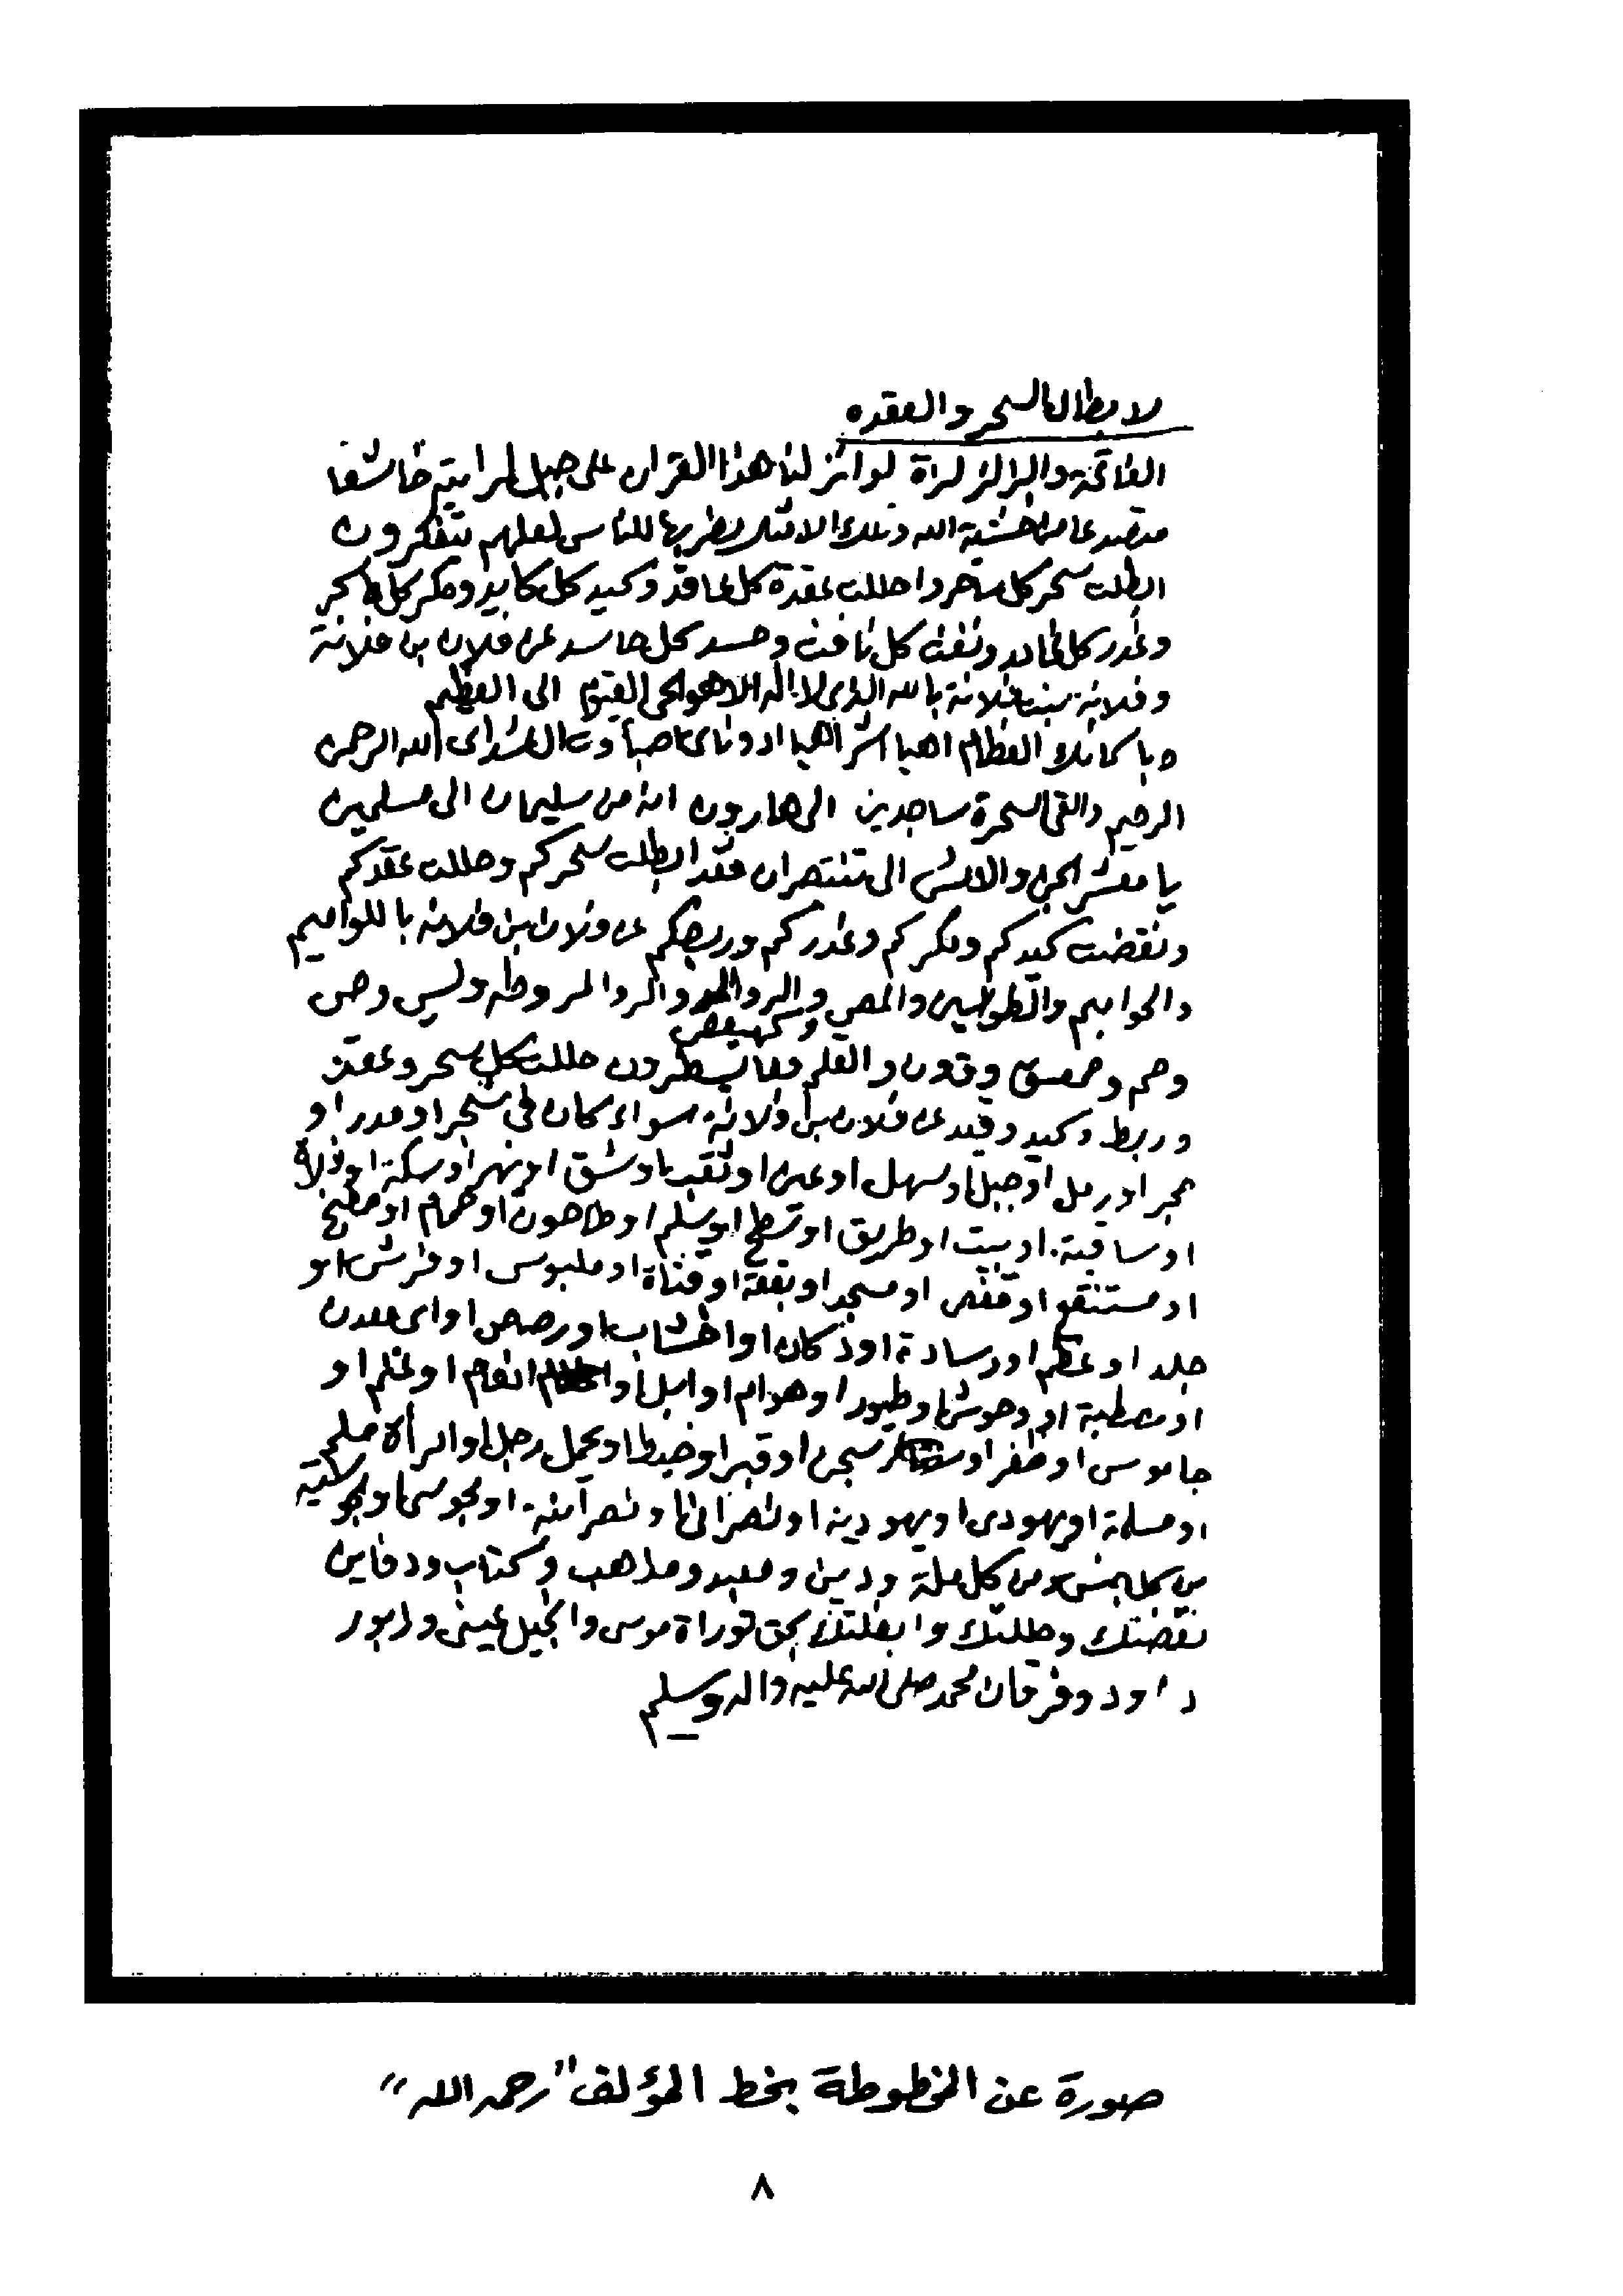 لابطال السحر والعقده
الفاتحة والزلزلة لو انزلنا هذا القران على جبل لرايته خاشعا
متصدعا من خشية الله وتلك الامثال نضربها للناس لعلهم يتفكرون
ابطلت سحر كل ساحر واحللت عقدة كل عاقد وكيد كل كايد ومكر كل ماكر
وغدر كل غادر ونفث كل نافث وحسد كل حاسد عن فلان بن فلانة
وفلانة بنت فلانة بالله الذي لا اله الا هو الحي القيوم الى العظيم
العظام اهيا اشراهيا ادوناي اصباوت ال شداي الله الرحمن
الرحيم والقي السحرة ساجدين الى هارون انه من سليمان الى مسلمين
يا معشر الجن والانس الى تنتصران فقد ابطلت سحركم وحللت عقدكم
ونقضت كيدكم ومكركم وغدركم وربطكم عن فلان ابن فلانه باللواميم
والحواميم والطواسين والمص والر والمر والر والمر وطه ويس وص
وكهيعص
وحم وحمعسق وق ون والقلم وما يسطرون حللت كل سحر وعقد
وربط وكيد وقيد عن فلان بن فلانة سواء كان في شجر او مدر او
حجر او رمل او جبل او سهل او عين او ثقب او شق او نهر او سكة او فلاة
او ساقية او بيت او طريق او سطح او سلم او طاحون او حمام او مطبخ
او مستنقع او قفص او مسجد او بقعة او قناة او ملبوس او فرش او
جلد او عظم او وسادة او دكان او اخشاب او رصص او اي معدن
او مصطبة او وحوش او طيور او هوام او ابل او انعام او غنم او
جاموس او ظفر او سجن او قبر او خيط او بحمل رجل او امرأة مسلم
او مسلمة او يهودي او يهودية او نصراني او نصرانية او مجوسي او مجوسية
من كل جنس ومن كل ملة ودين ومعبد ومذاهب وكتاب ودفاين
نقضتك وحللتك وابطلتك بحق توراة موسى وانجيل عيسى وزبور
داود وفرقان محمد صلى الله عليه واله وسلم
صورة عن المخطوطة بخط المؤلف "رحمه الله"
٨